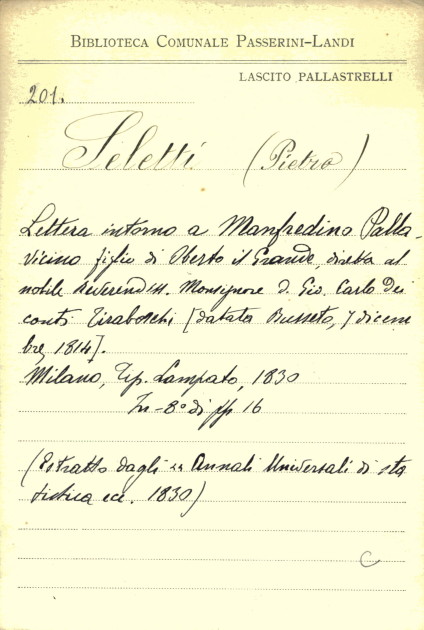 BIBLIOTECA COMUNALE PASSERINI-LANDI
LASCITO PALLASTRELLI
201.
Seletti (Pietro)
Lettera intorno a Manfredino Palla-
vicino figlio di Oberto il Grande, diretta al
nobile Reverendiss. Monsignore D. Gio. Carlo Dei
conti Tiraboschi [datata Busseto, 7 dicem
bre 1814].
Milano, Tip. Lampato, 1830
In-8° di pp 16
(Estratto dagli "Annali Universali di sta
tistica ecc. 1830)
C